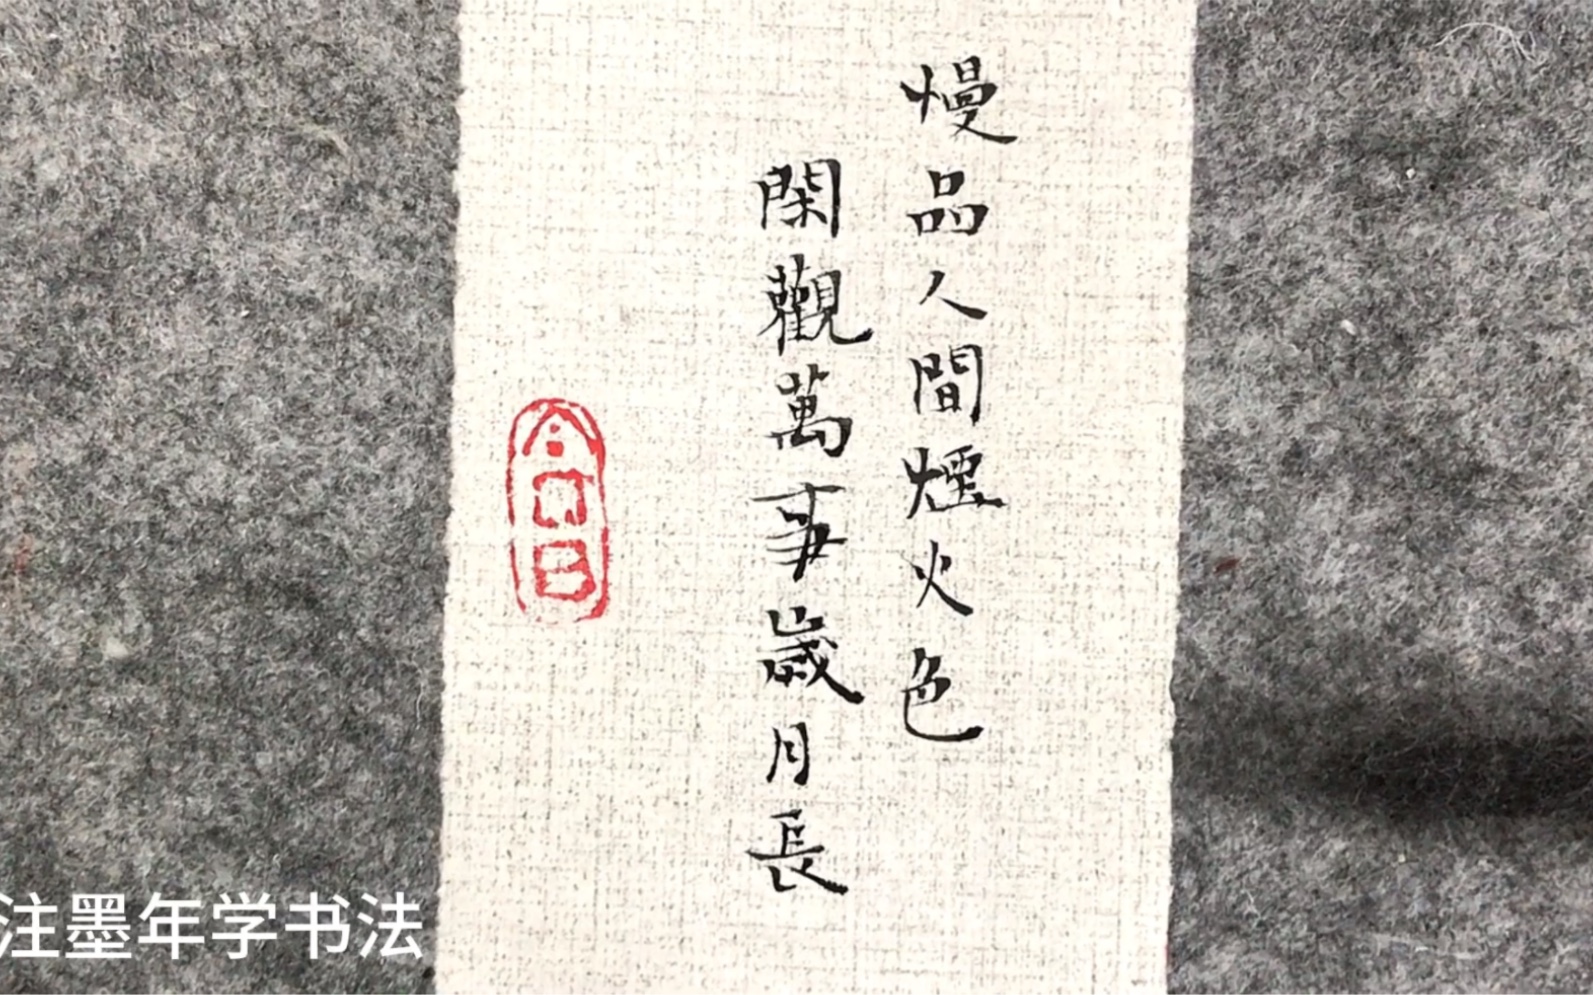 慢品人間煙火色
閑觀萬事歲月長
注墨年学书法